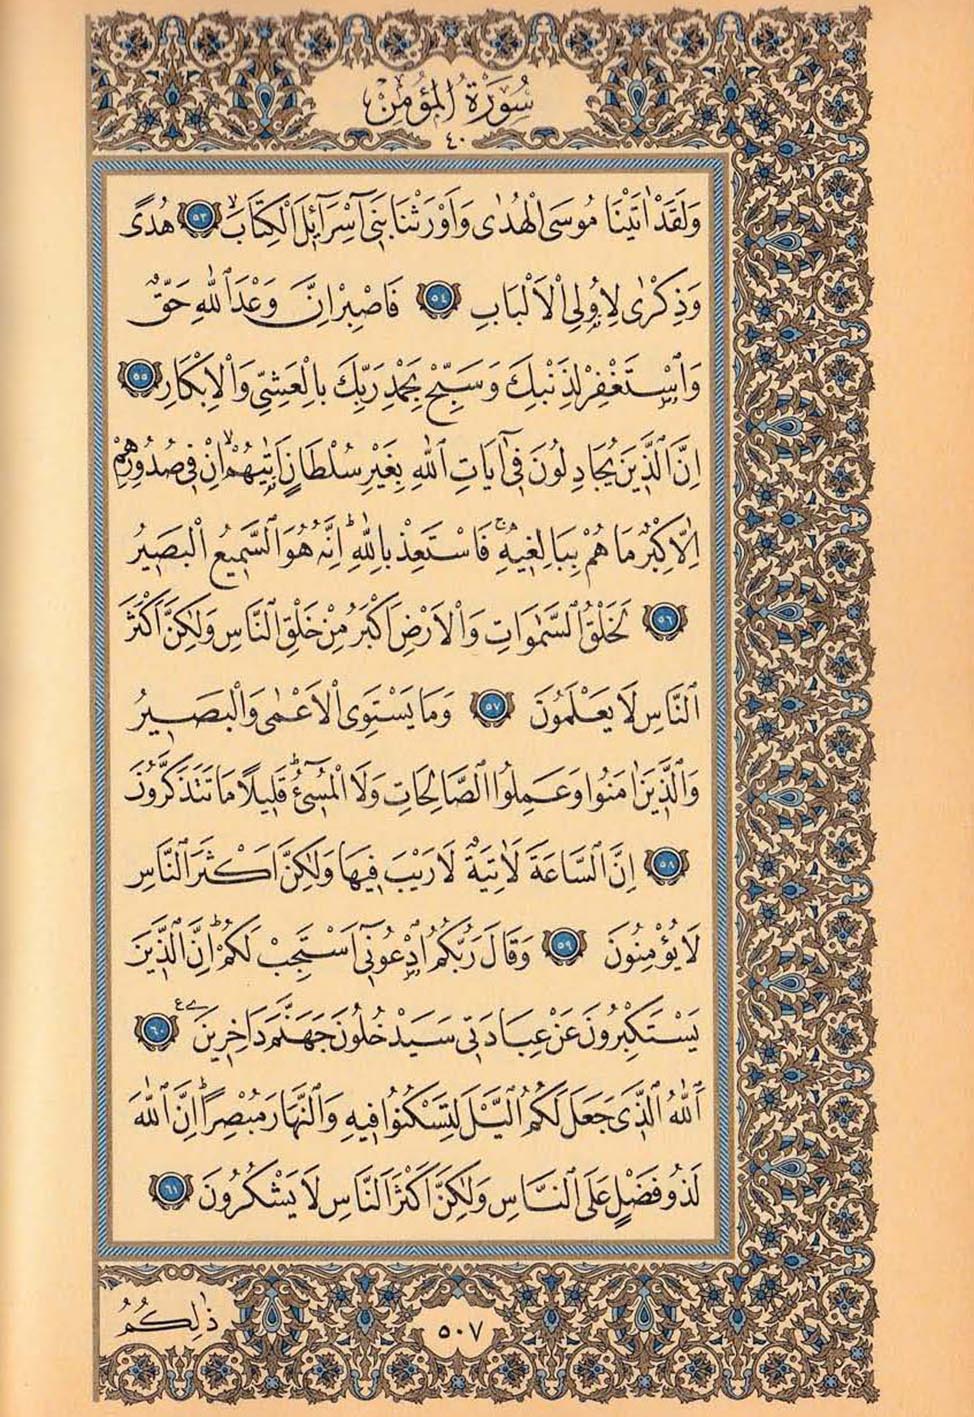 سُورَةُ الْمُؤْمِنْ
٤٠
وَلَقَدْ اٰتَيْنَا مُوسَى الْهُدٰى وَاَوْرَثْنَا بَنٓى اِسْرَٓائِلَ الْكِتَابَۙ ٥٣ هُدًى
وَذِكْرٰى لِاُولِى الْاَلْبَابِ ٥٤ فَاصْبِرْ اِنَّ وَعْدَ اللّٰهِ حَقٌّ
وَاسْتَغْفِرْ لِذَنْبِكَ وَسَبِّحْ بِحَمْدِ رَبِّكَ بِالْعَشِىِّ وَالْاِبْكَارِ ٥٥
اِنَّ الَّذٖينَ يُجَادِلُونَ فٖٓى اٰيَاتِ اللّٰهِ بِغَيْرِ سُلْطَانٍ اَتٰيهُمْۙ اِنْ فٖى صُدُورِهِمْ
اِلَّا كِبْرٌ مَا هُمْ بِبَالِغٖيهِۚ فَاسْتَعِذْ بِاللّٰهِۜ اِنَّهُ هُوَ السَّمٖيعُ الْبَصٖيرُ
٥٦ لَخَلْقُ السَّمٰوَاتِ وَالْاَرْضِ اَكْبَرُ مِنْ خَلْقِ النَّاسِ وَلٰكِنَّ اَكْثَرَ
النَّاسِ لَا يَعْلَمُونَ ٥٧ وَمَا يَسْتَوِى الْاَعْمٰى وَالْبَصٖيرُ
وَالَّذٖينَ اٰمَنُوا وَعَمِلُوا الصَّالِحَاتِ وَلَا الْمُسٖٓئُۜ قَلٖيلًا مَا تَتَذَكَّرُونَ
٥٨ اِنَّ السَّاعَةَ لَاٰتِيَةٌ لَا رَيْبَ فٖيهَا وَلٰكِنَّ اَكْثَرَ النَّاسِ
لَا يُؤْمِنُونَ ٥٩ وَقَالَ رَبُّكُمُ ادْعُونٖٓى اَسْتَجِبْ لَكُمْۜ اِنَّ الَّذٖينَ
يَسْتَكْبِرُونَ عَنْ عِبَادَتٖى سَيَدْخُلُونَ جَهَنَّمَ دَاخِرٖينَ ٦٠
اَللّٰهُ الَّذٖى جَعَلَ لَكُمُ الَّيْلَ لِتَسْكُنُوا فٖيهِ وَالنَّهَارَ مُبْصِرًاۜ اِنَّ اللّٰهَ
لَذُو فَضْلٍ عَلَى النَّاسِ وَلٰكِنَّ اَكْثَرَ النَّاسِ لَا يَشْكُرُونَ ٦١
ذٰلِكُمُ
٥٠٧